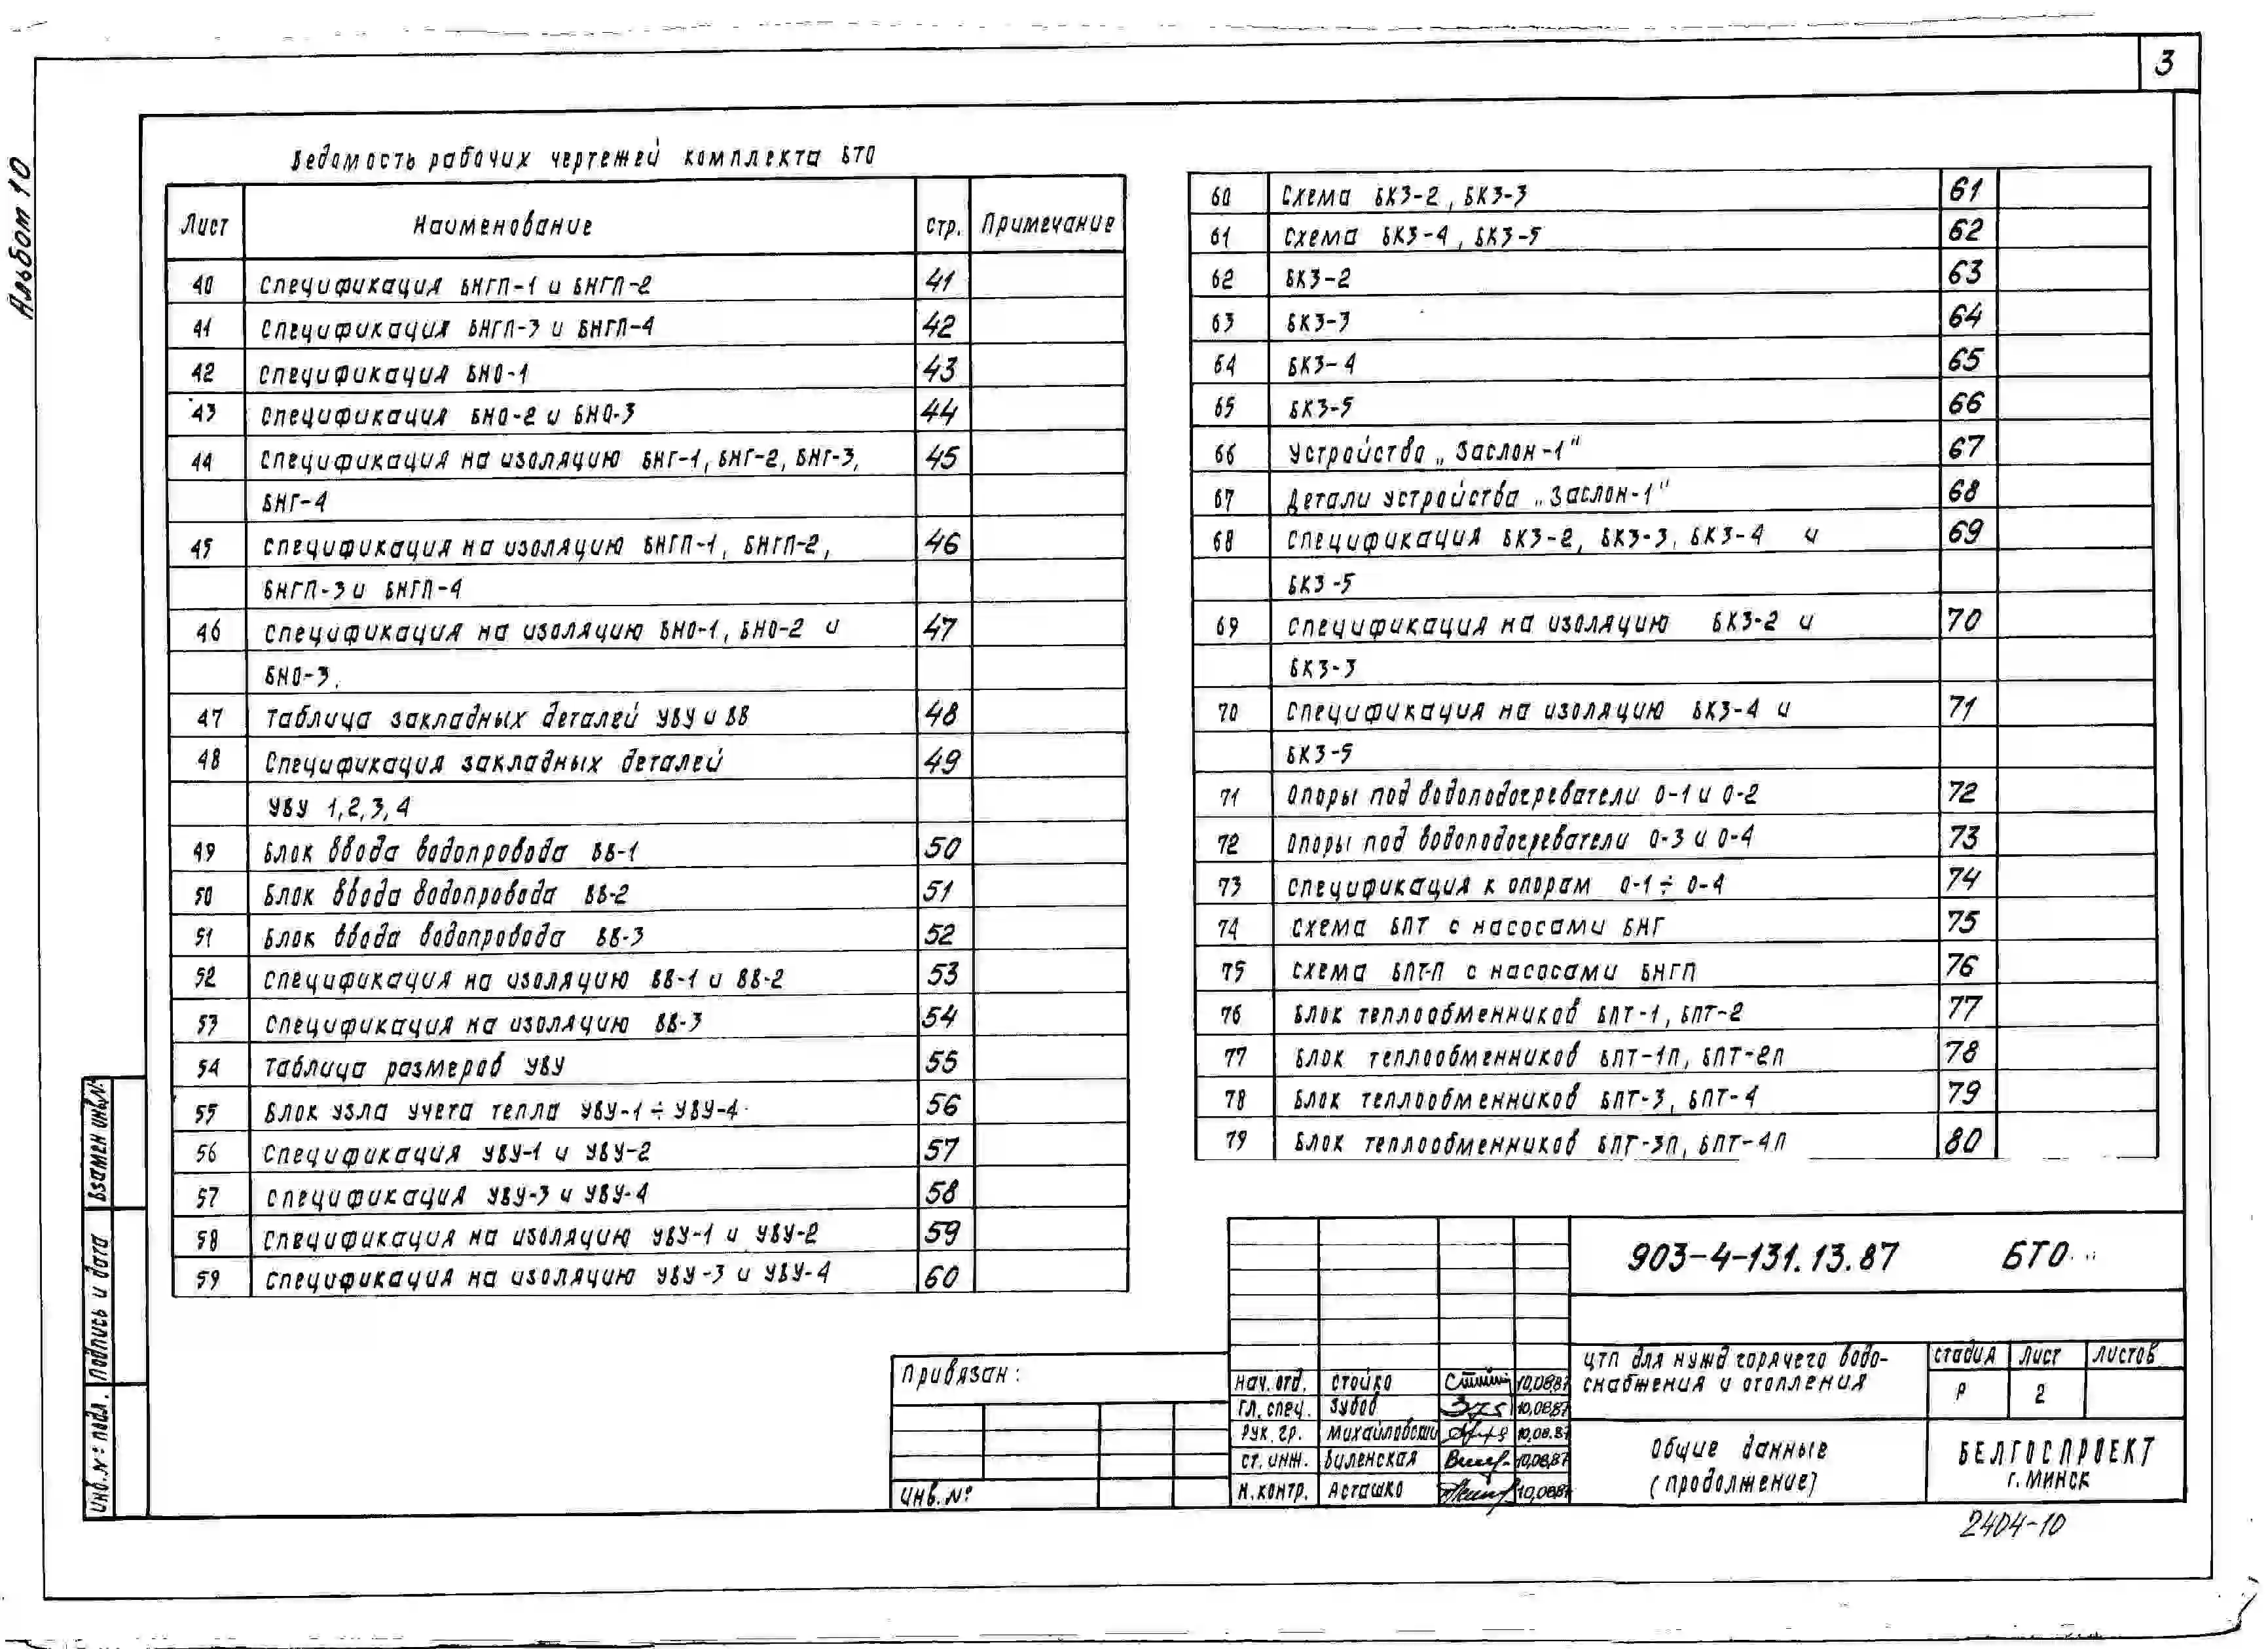 3
Альбом 10
Ведомость рабочих чертежей комплекта БТО
Лист Наименование стр. Примечание
40 Спецификация БНГП-1 и БНГП-2 41
41 Спецификация БНГП-3 и БНГП-4 42
42 Спецификация БНО-1 43
43 Спецификация БНО-2 и БНО-3 44
44 Спецификация на изоляцию БНГ-1, БНГ-2, БНГ-3, 45
БНГ-4
45 Спецификация на изоляцию БНГП-1, БНГП-2, 46
БНГП-3 и БНГП-4
46 Спецификация на изоляцию БНО-1, БНО-2 и 47
БНО-3.
47 Таблица закладных деталей УВУ и ВВ 48
48 Спецификация закладных деталей 49
УВУ 1,2,3,4
49 Блок ввода водопровода ВВ-1 50
50 Блок ввода водопровода ВВ-2 51
51 Блок ввода водопровода ВВ-3 52
52 Спецификация на изоляцию ВВ-1 и ВВ-2 53
53 Спецификация на изоляцию ВВ-3 54
54 Таблица размеров УВУ 55
55 Блок узла учета тепла УВУ-1÷УВУ-4 56
56 Спецификация УВУ-1 и УВУ-2 57
57 Спецификация УВУ-3 и УВУ-4 58
58 Спецификация на изоляцию УВУ-1 и УВУ-2 59
59 Спецификация на изоляцию УВУ-3 и УВУ-4 60
60 Схема БКЗ-2, БКЗ-3 61
61 Схема БКЗ-4, БКЗ-5 62
62 БКЗ-2 63
63 БКЗ-3 64
64 БКЗ-4 65
65 БКЗ-5 66
66 Устройство „Заслон-1" 67
67 Детали устройства „Заслон-1" 68
68 Спецификация БКЗ-2, БКЗ-3, БКЗ-4 и 69
БКЗ-5
69 Спецификация на изоляцию БКЗ-2 и 70
БКЗ-3
70 Спецификация на изоляцию БКЗ-4 и 71
БКЗ-5
71 Опоры под водоподогреватели О-1 и О-2 72
72 Опоры под водоподогреватели О-3 и О-4 73
73 Спецификация к опорам О-1÷О-4 74
74 Схема БПТ с насосами БНГ 75
75 Схема БПТ-П с насосами БНГП 76
76 Блок теплообменников БПТ-1, БПТ-2 77
77 Блок теплообменников БПТ-1П, БПТ-2П 78
78 Блок теплообменников БПТ-3, БПТ-4 79
79 Блок теплообменников БПТ-3П, БПТ-4П 80
Взамен инв.№
Подпись и дата
Инв.№ подл.
Привязан:
Инв. №
903-4-131.13.87 БТО
Нач. отд. Стойко 10.08.87
Гл. спец. Зубов 10.08.87
Рук. гр. Михайловский 10.08.87
Ст. инж. Виленская 10.08.87
Н. контр. Асташко 10.08.87
ЦТП для нужд горячего водо-
снабжения и отопления
Стадия Лист Листов
Р 2
Общие данные
(продолжение)
БЕЛГОСПРОЕКТ
г. Минск
2404-10